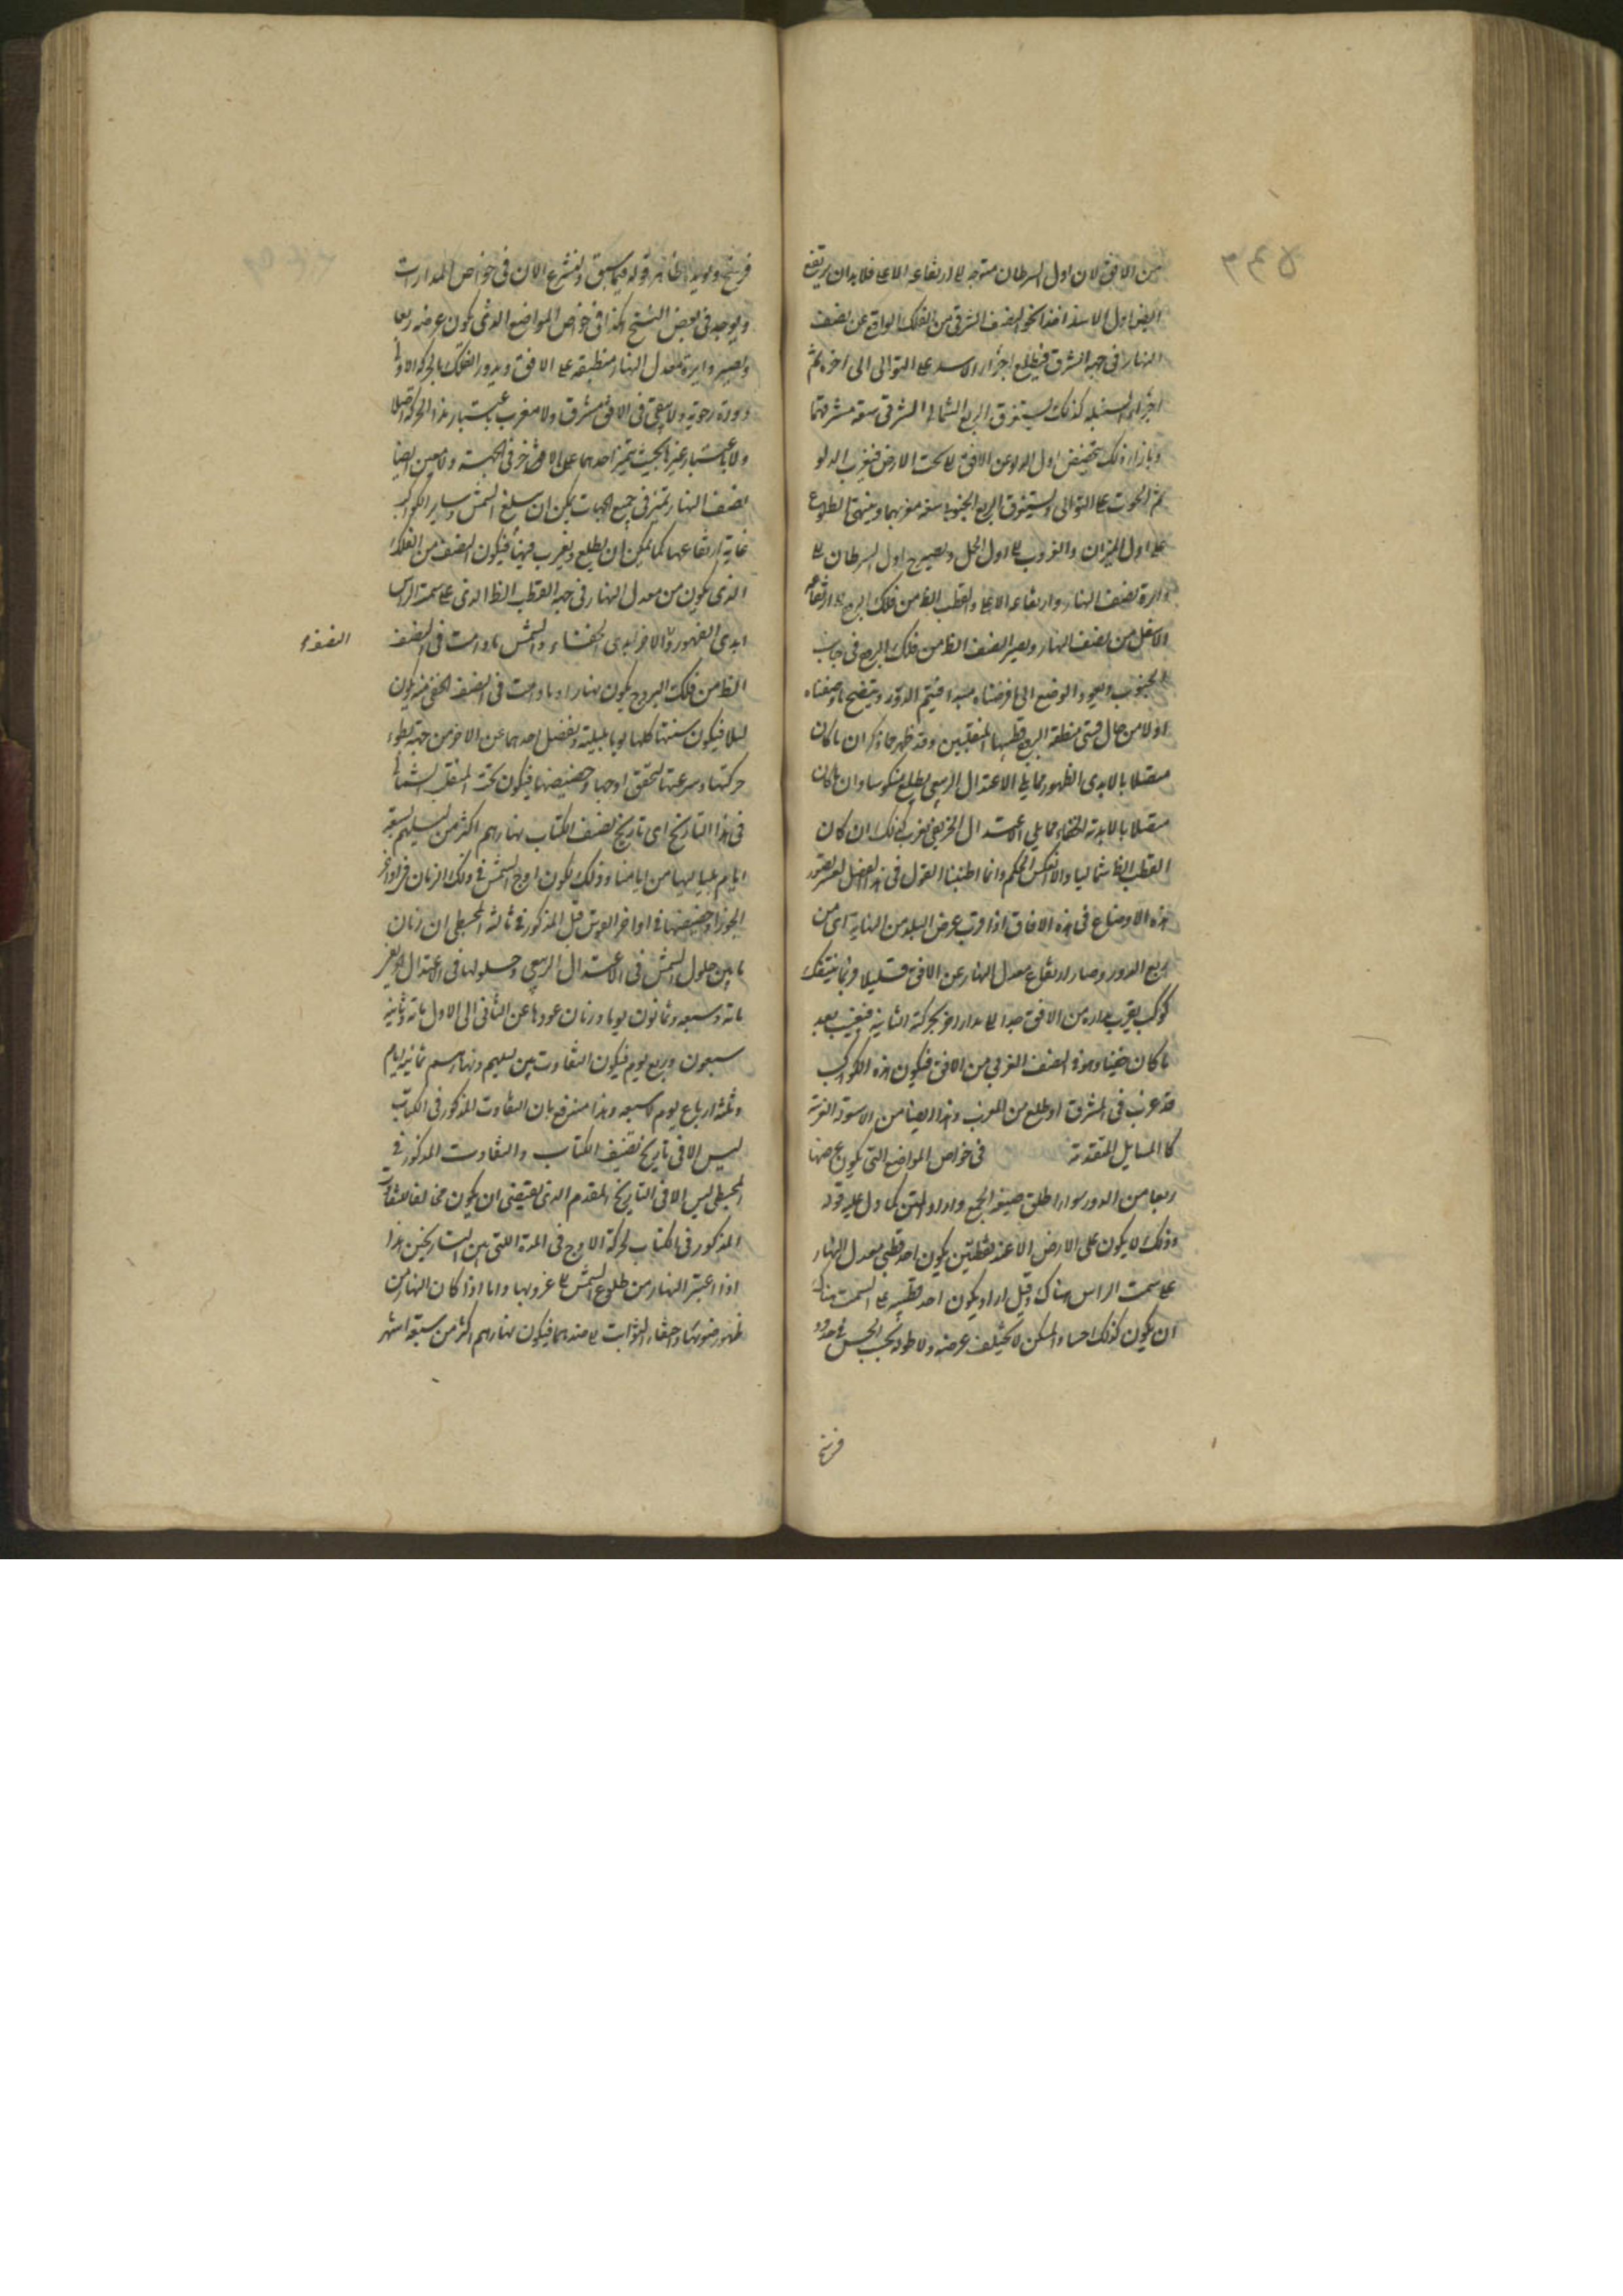 من الافق لان اول السرطان متوجه الى ارتفاعه الاعلى فلا بد ان يرتفع
ايضا اول الاسد اخذا نحو النصف الشرقى من الفلك الواقع عن نصف
النهار فى جهة المشرق فيطلع اجزاء الاسد على التوالى الى اخره ثم
اجزاء السنبلة كذلك ليستغرق الربع الشمالى الشرقى سعة مشرقهما
وبازاء ذلك ينخفض اول الدلو عن الافق الى تحت الارض فيغرب الدلو
ثم الحوت على التوالى ويستغرق الربع الجنوبى سعة مغربهما وينتهى الطلوع
على اول الميزان والغروب الى اول الحمل ويصير اول السرطان الى
دايرة نصف النهار وارتفاعه الاعلى والقطب الظ من فلك البروج الى ارتفاعه
الاسفل من نصف النهار ويصير النصف الظ من فلك البروج فى جانب
الجنوب ويعود الوضع الى ما فرضناه مبدا فيتم الدور ويتضح ما وصفناه
اولا من حال قسى منطقة البروج المنقلبين وقد ظهر مما ذكر ان ما كان
متصلا بالابدى الظهور مما يلى الاعتدال الربيعى يطلع منكوسا وان ما كان
متصلا بالابدى الخفاء مما يلى الاعتدال الخريفى يغرب كذلك ان كان
القطب الظ شماليا والا انعكس الحكم وانما اطنبنا القول فى هذا الفصل لعسر تصور
هذه الاوضاع فى هذه الافاق اذا قرب عرض البلد من النهاية اى من
ربع الدور وصار ارتفاع معدل النهار عن الافق قليلا فربما يتفق
كوكب يقرب مداره من الافق جدا الى مدار اخر بحركته الثانية فيغيب بعد
ما كان خفيا وهو فى النصف الغربى من الافق فيكون هذه الكواكب
قد غرب فى المشرق او طلع من المغرب وهذا ايضا من الامور الغريبة
كالمسايل المتقدمة فى خواص المواضع التى يكون عرضها
ربعا من الدور سواء اطلق صيغة الجمع واراد المثنى كما دل عليه قوله
وذلك لا يكون على الارض الا عند نقطتين يكون احد قطبى معدل النهار
على سمت الراس هناك وقيل اراد يكون احد قطبيه على السمت هناك
ان يكون كذلك احساء والمسكن لا يختلف عرضه ولا طوله بحسب الحس فى حدود
فرسخ
فرسخ ويؤيد ظاهر قوله فيما سبق ولنشرع الان فى خواص المدارات
ويوجد فى بعض النسخ هكذا فى خواص المواضع الذى يكون عرضه ربعا
ويصير دايرة معدل النهار منطبقة على الافق ويدور الفلك بالحركة الاولى
دورة رحوية ولا يبقى فى الافق مشرق ولا مغرب باعتبار هذا الحركة اصلا
ولا باعتبار غيرها بحيث يتميز احدهما عن الاخر فى الجهة ولا يتعين ايضا
نصف النهار بتميز فى جميع الجهات يمكن ان يبلغ الشمس وساير الكواكب
غاية ارتفاعها كما يمكن ان يطلع ويغرب فيها فيكون النصف من الفلك
الذى يكون من معدل النهار فى جهة القطب الظ الذى على سمت الراس
ابدى الظهور والاخر ابدى الخفاء والشمس ما دامت فى النصف
الظ من فلك البروج يكون نهارا وما دامت فى النصف الخفى منه يكون
ليلا فيكون سنتها كلها يوما بليلة ويفضل احدهما عن الاخر من جهة بطوء
حركتها وسرعتها لتحقق اوجها وحضيضها فيكون تحت المنقلب الشمالى
فى هذا التاريخ اى تاريخ تصنيف الكتاب نهارهم اكثر من ليلهم بسبعة
ايام بلياليها من ايامنا وذلك لكون اوج الشمس فى ذلك الزمان فى اواخر
الجوزا وحضيضها فى اواخر القوس قيل المذكور فى ثالثة المجسطى ان زمان
ما بين حلول الشمس فى الاعتدال الربيعى وحلولها فى الاعتدال الخريفى
مائة وسبعة وثمانون يوما وزمان عودها عن الثانى الى الاول مائة وثمانية
سبعون وربع يوم فيكون التفاوت بين ليلهم ونهارهم ثمانية ايام
وثلثة ارباع يوم لا سبعة وهذا مندفع بان التفاوت المذكور فى الكتاب
ليس الا فى تاريخ تصنيف الكتاب والتفاوت المذكور فى
المجسطى ليس الا فى التاريخ المقدم الذى يقتضى ان يكون مخالفا للتفاوت
المذكور فى الكتاب لحركة الاوج فى المدة التى بين التاريخين هذا
اذا اعتبر النهار من طلوع الشمس الى غروبها واما اذا كان النهار من
ظهور ضوئها وخفاء الثوابت الى ضدهما فيكون نهارهم اكثر من سبعة اشهر